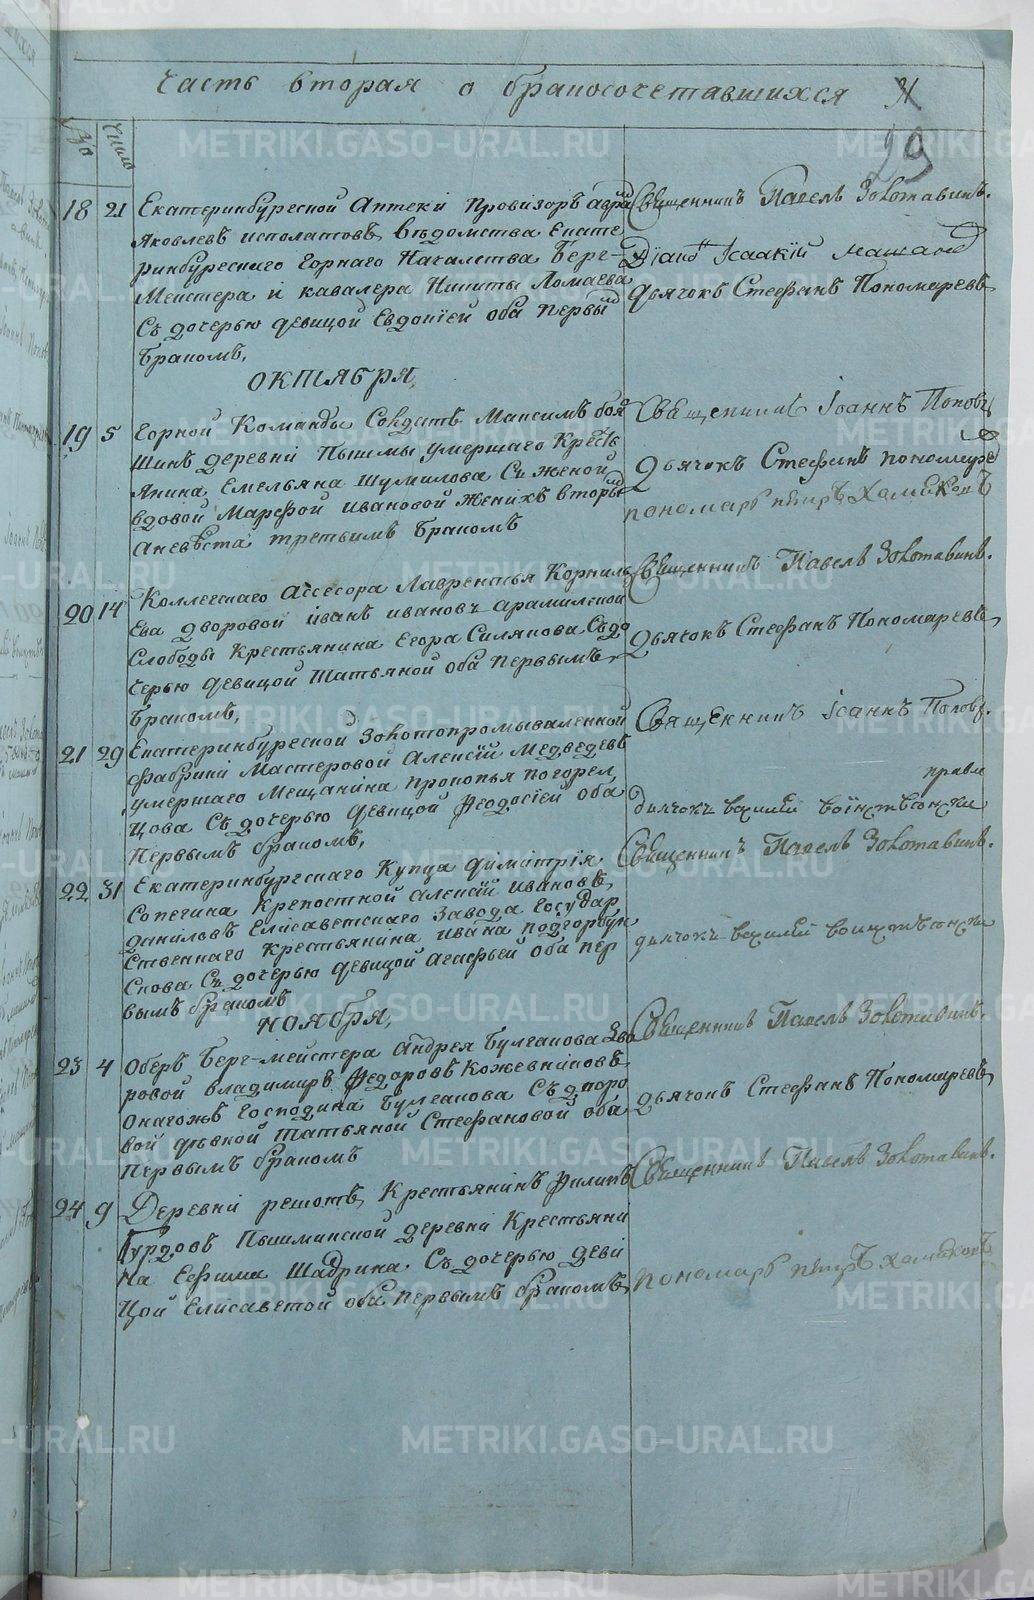 Часть вторая о бракосочетавшихся 31
29
Число
18 21 Екатеринбургской Аптеки провизоръ
Яковлевъ исполатовъ, Ведомства Екате
ринбургскаго Горнаго Началства Берг-
Меистера и кавалера Никиты Ломаева
Съ дочерью девицой Евдокіей оба первый
бракомъ,
Священникъ Павелъ Золотавинъ.
Діако Ісаакій
Дьячокъ Стефанъ Пономаревъ
ОКТЯБРЯ,
19 5 Горной Команды Солдатъ Максимъ боя
шинъ деревни Пышмы умершаго Кресть
янина Емельяна Шумилова Съ женой
вдовой Марфой ивановой Женихъ вторы
аневеста третьимъ бракомъ
Священникъ Іоаннъ Поповъ
Дьячокъ Стефанъ пономаре
пономарь петръ Хомяковъ
20 14 Коллегскаго Ассесора Лаврентья Корниль
Ева дворовой іванъ ивановъ арамилской
Слободы Крестьянина Егора Силянова Съ до
черью девицой Татьяной оба первымъ
бракомъ,
Священникъ Павелъ Золотавинъ.
Дьячокъ Стефанъ Пономаревъ
21 29 Екатеринбургской Золотопромываленной
фабрики Мастеровой Алексій Медведевъ
умершаго Мещанина прокопья погорел
цова Съ дочерью девицой Феодосіей оба
первымъ бракомъ,
Священникъ Іоаннъ Поповъ.
дьячокъ
22 31 Екатеринбургскаго Купца Димитрія
Сопегина Крепостной алексій Ивановъ
даниловъ Елисаветскаго Завода Государ
ственнаго Крестьянина ивана подгорбун
скова Съ дочерью девицой агафьей оба пер
вымъ бракомъ
Священникъ Павелъ Золотавинъ.
дьячокъ
НОЯБРЯ,
23 4 Оберъ берг-мейстера андрея Булгакова дво
ровой владимиръ Федоровъ Кожевниковъ
Онагожъ Господина Булгакова Съ дворо
вой девкой Татьяной Стефановой оба
первымъ бракомъ
Священникъ Павелъ Золотавинъ.
Дьячокъ Стефанъ Пономаревъ
24 9 Деревни решотъ, Крестьянинъ Филипъ
Гурдовъ Пышминской деревни Крестьяни
на Ефима Шадрина Съ дочерью деви
цой Елисаветой оба первымъ бракомъ
Священникъ Павелъ Золотавинъ.
пономарь петръ хомяковъ
METRIKI.GASO-URAL.RU